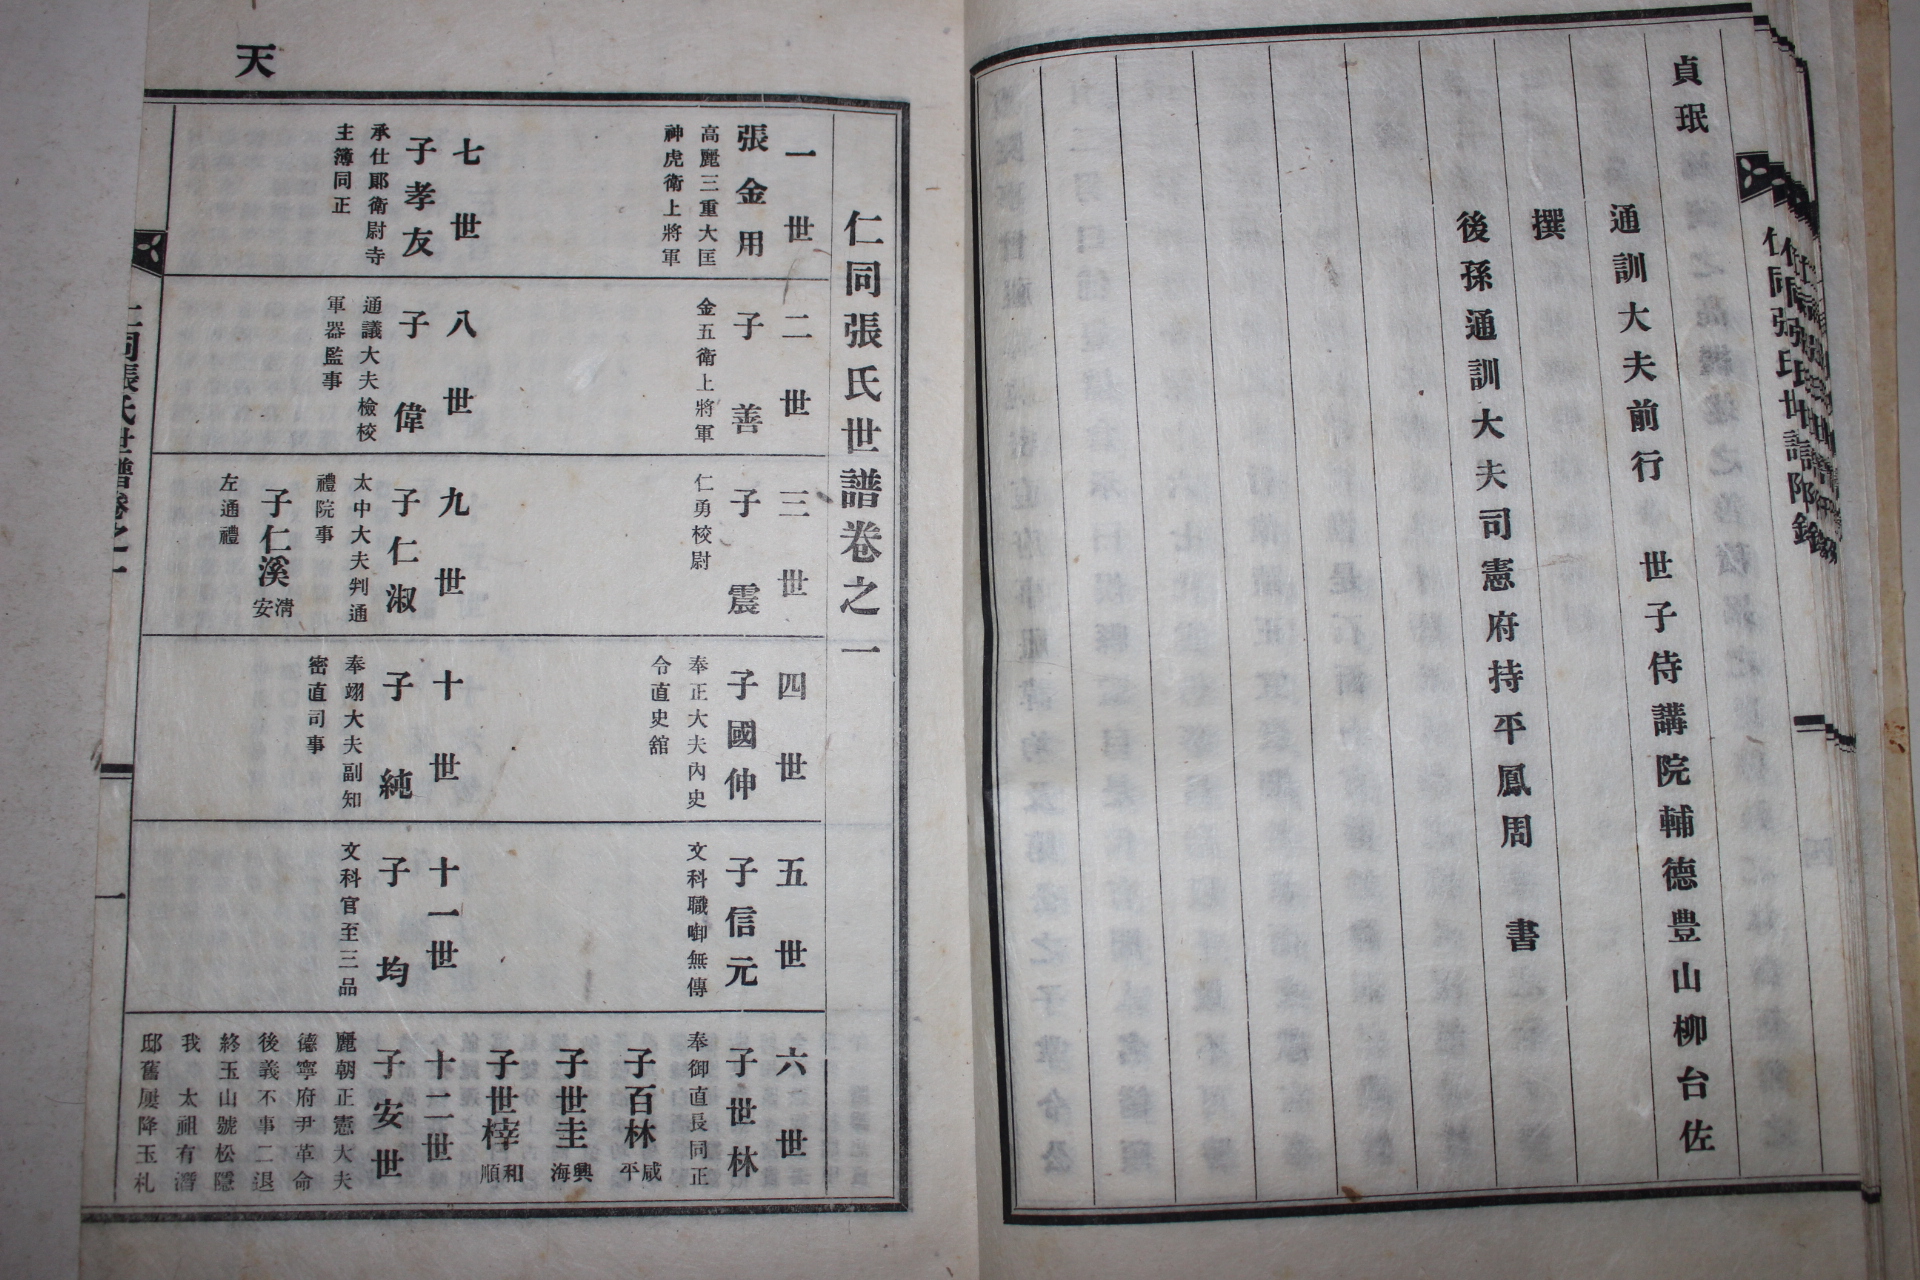 貞珉
通訓大夫前行 世子侍講院輔德豊山柳台佐
撰
後孫通訓大夫司憲府持平鳳周 書
仁同張氏世譜卷之一
天
一世
張金用
高麗三重大匡
神虎衛上將軍
二世
子善
金五衛上將軍
三世
子震
仁勇校尉
四世
子國伸
奉正大夫內史
令直史舘
五世
子信元
文科職啣無傳
六世
子世林
奉御直長同正
子百林 咸平
子世圭 興海
子世梓 和順
七世
子孝友
承仕郞衛尉寺
主簿同正
八世
子偉
通議大夫檢校
軍器監事
九世
子仁淑
太中大夫判通
禮院事
子仁溪 淸安
左通禮
十世
子純
奉翊大夫副知
密直司事
十一世
子均
文科官至三品
十二世
子安世
麗朝正憲大夫
德寧府尹革命
後義不事二退
終玉山號松隱
我 太祖有潛
邸舊屢降玉札
仁同張氏世譜卷之一
一